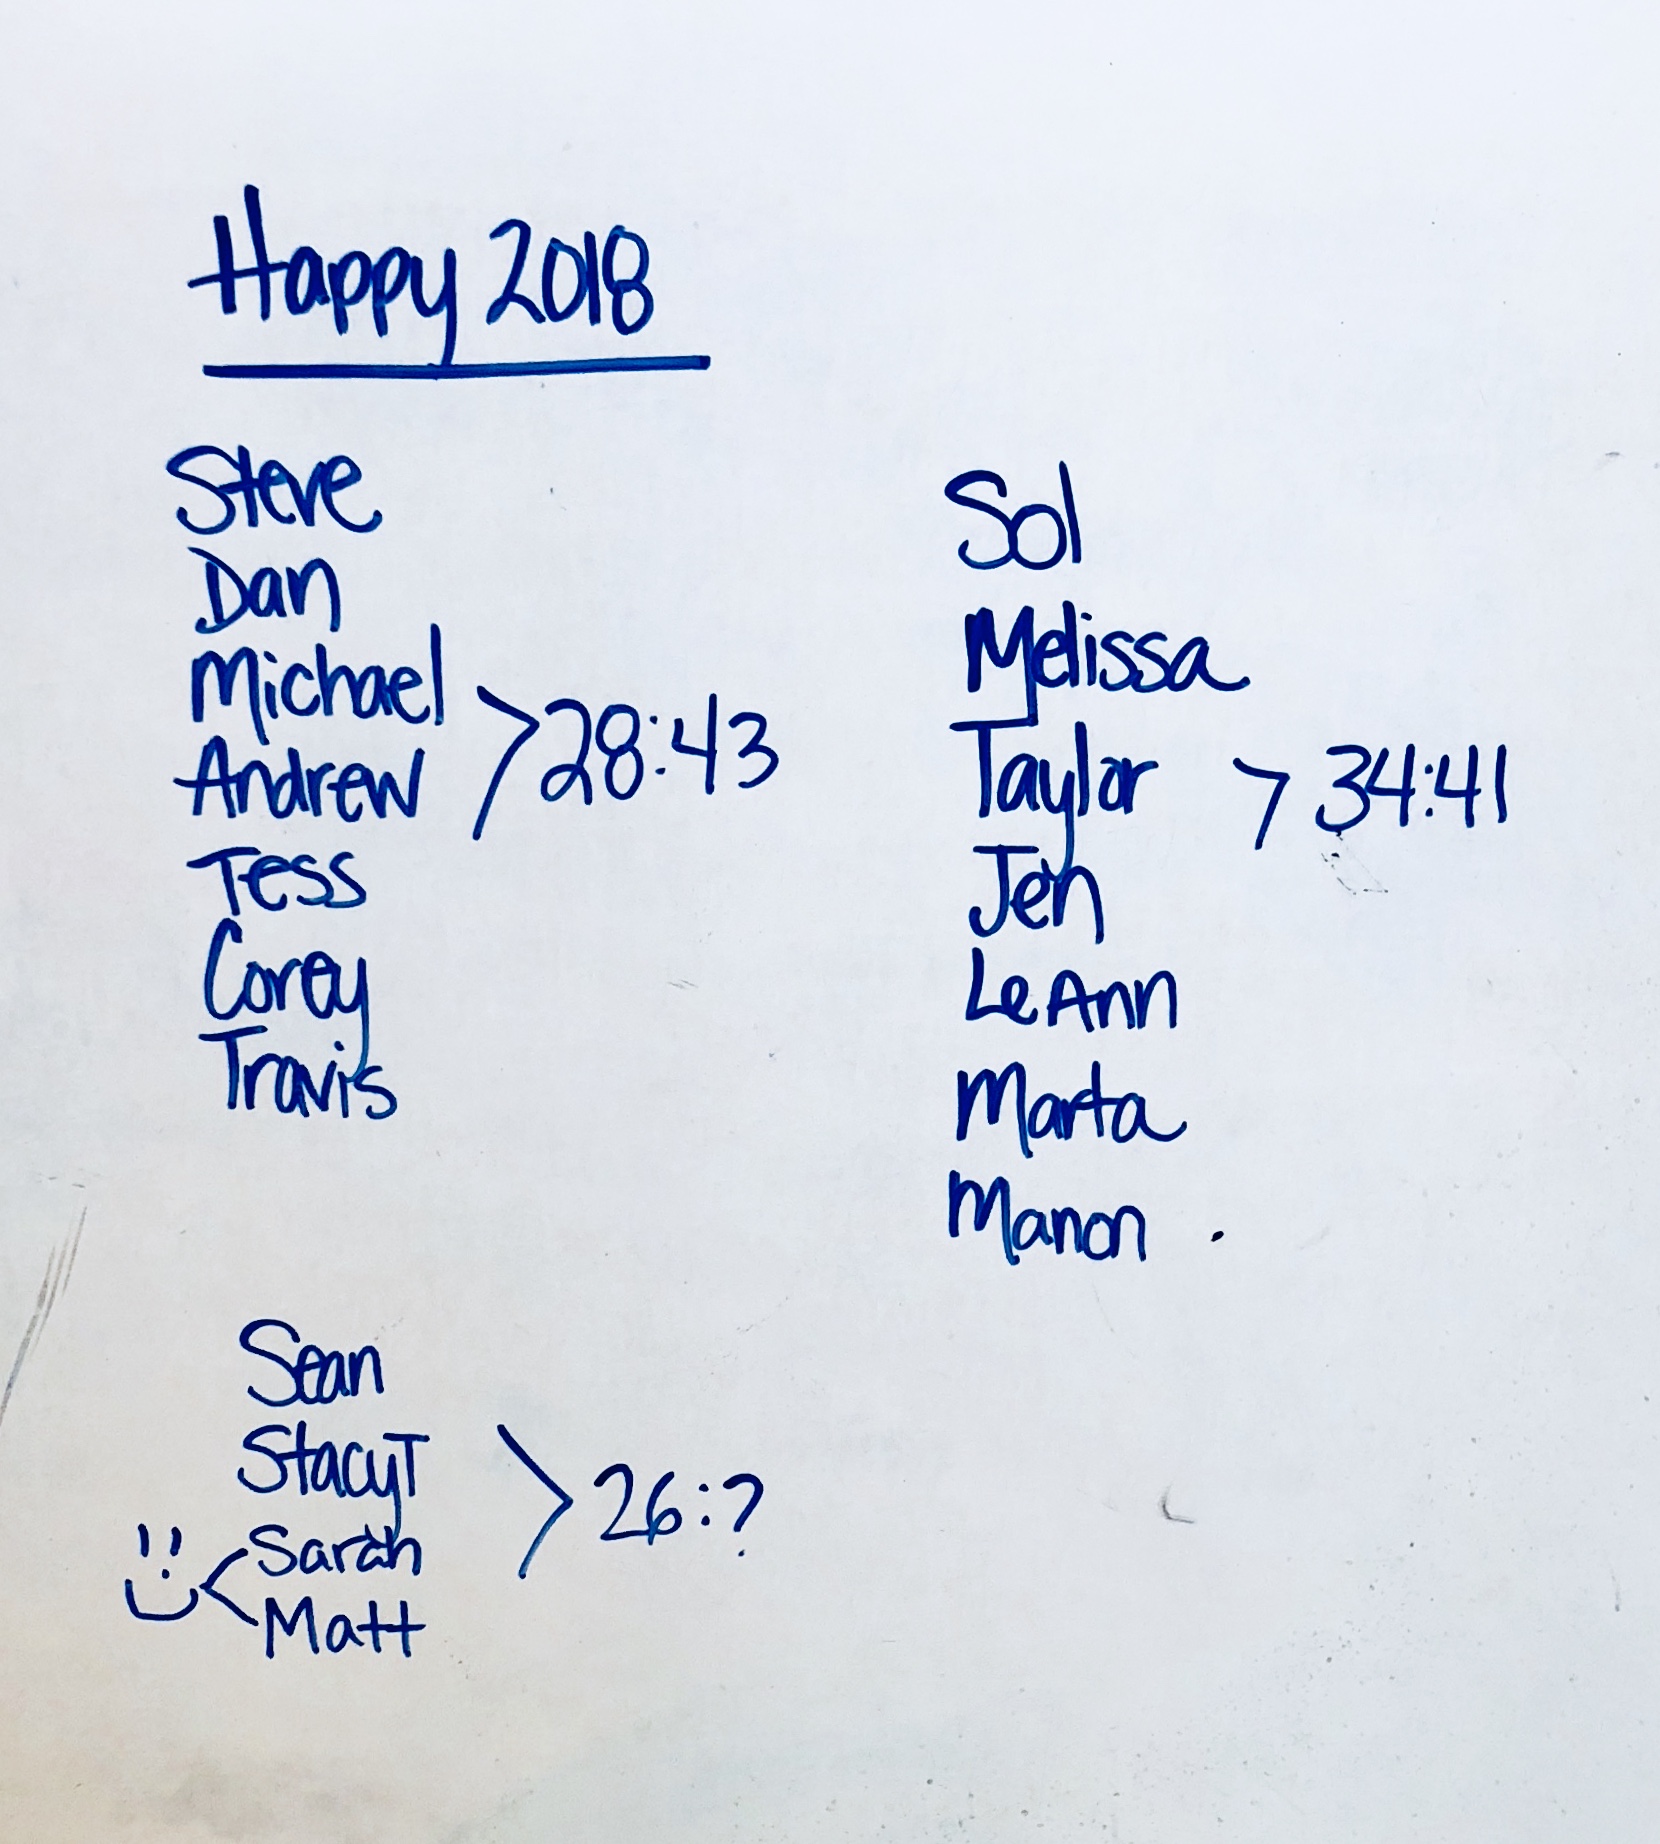 Happy 2018
Steve
Dan
Michael
Andrew
>28:43
Tess
Corey
Travis
Sol
Melissa
Taylor > 34:41
Jen
LeAnn
Marta
Manon
Sean
StacyT
>26:?
Sarah
Matt